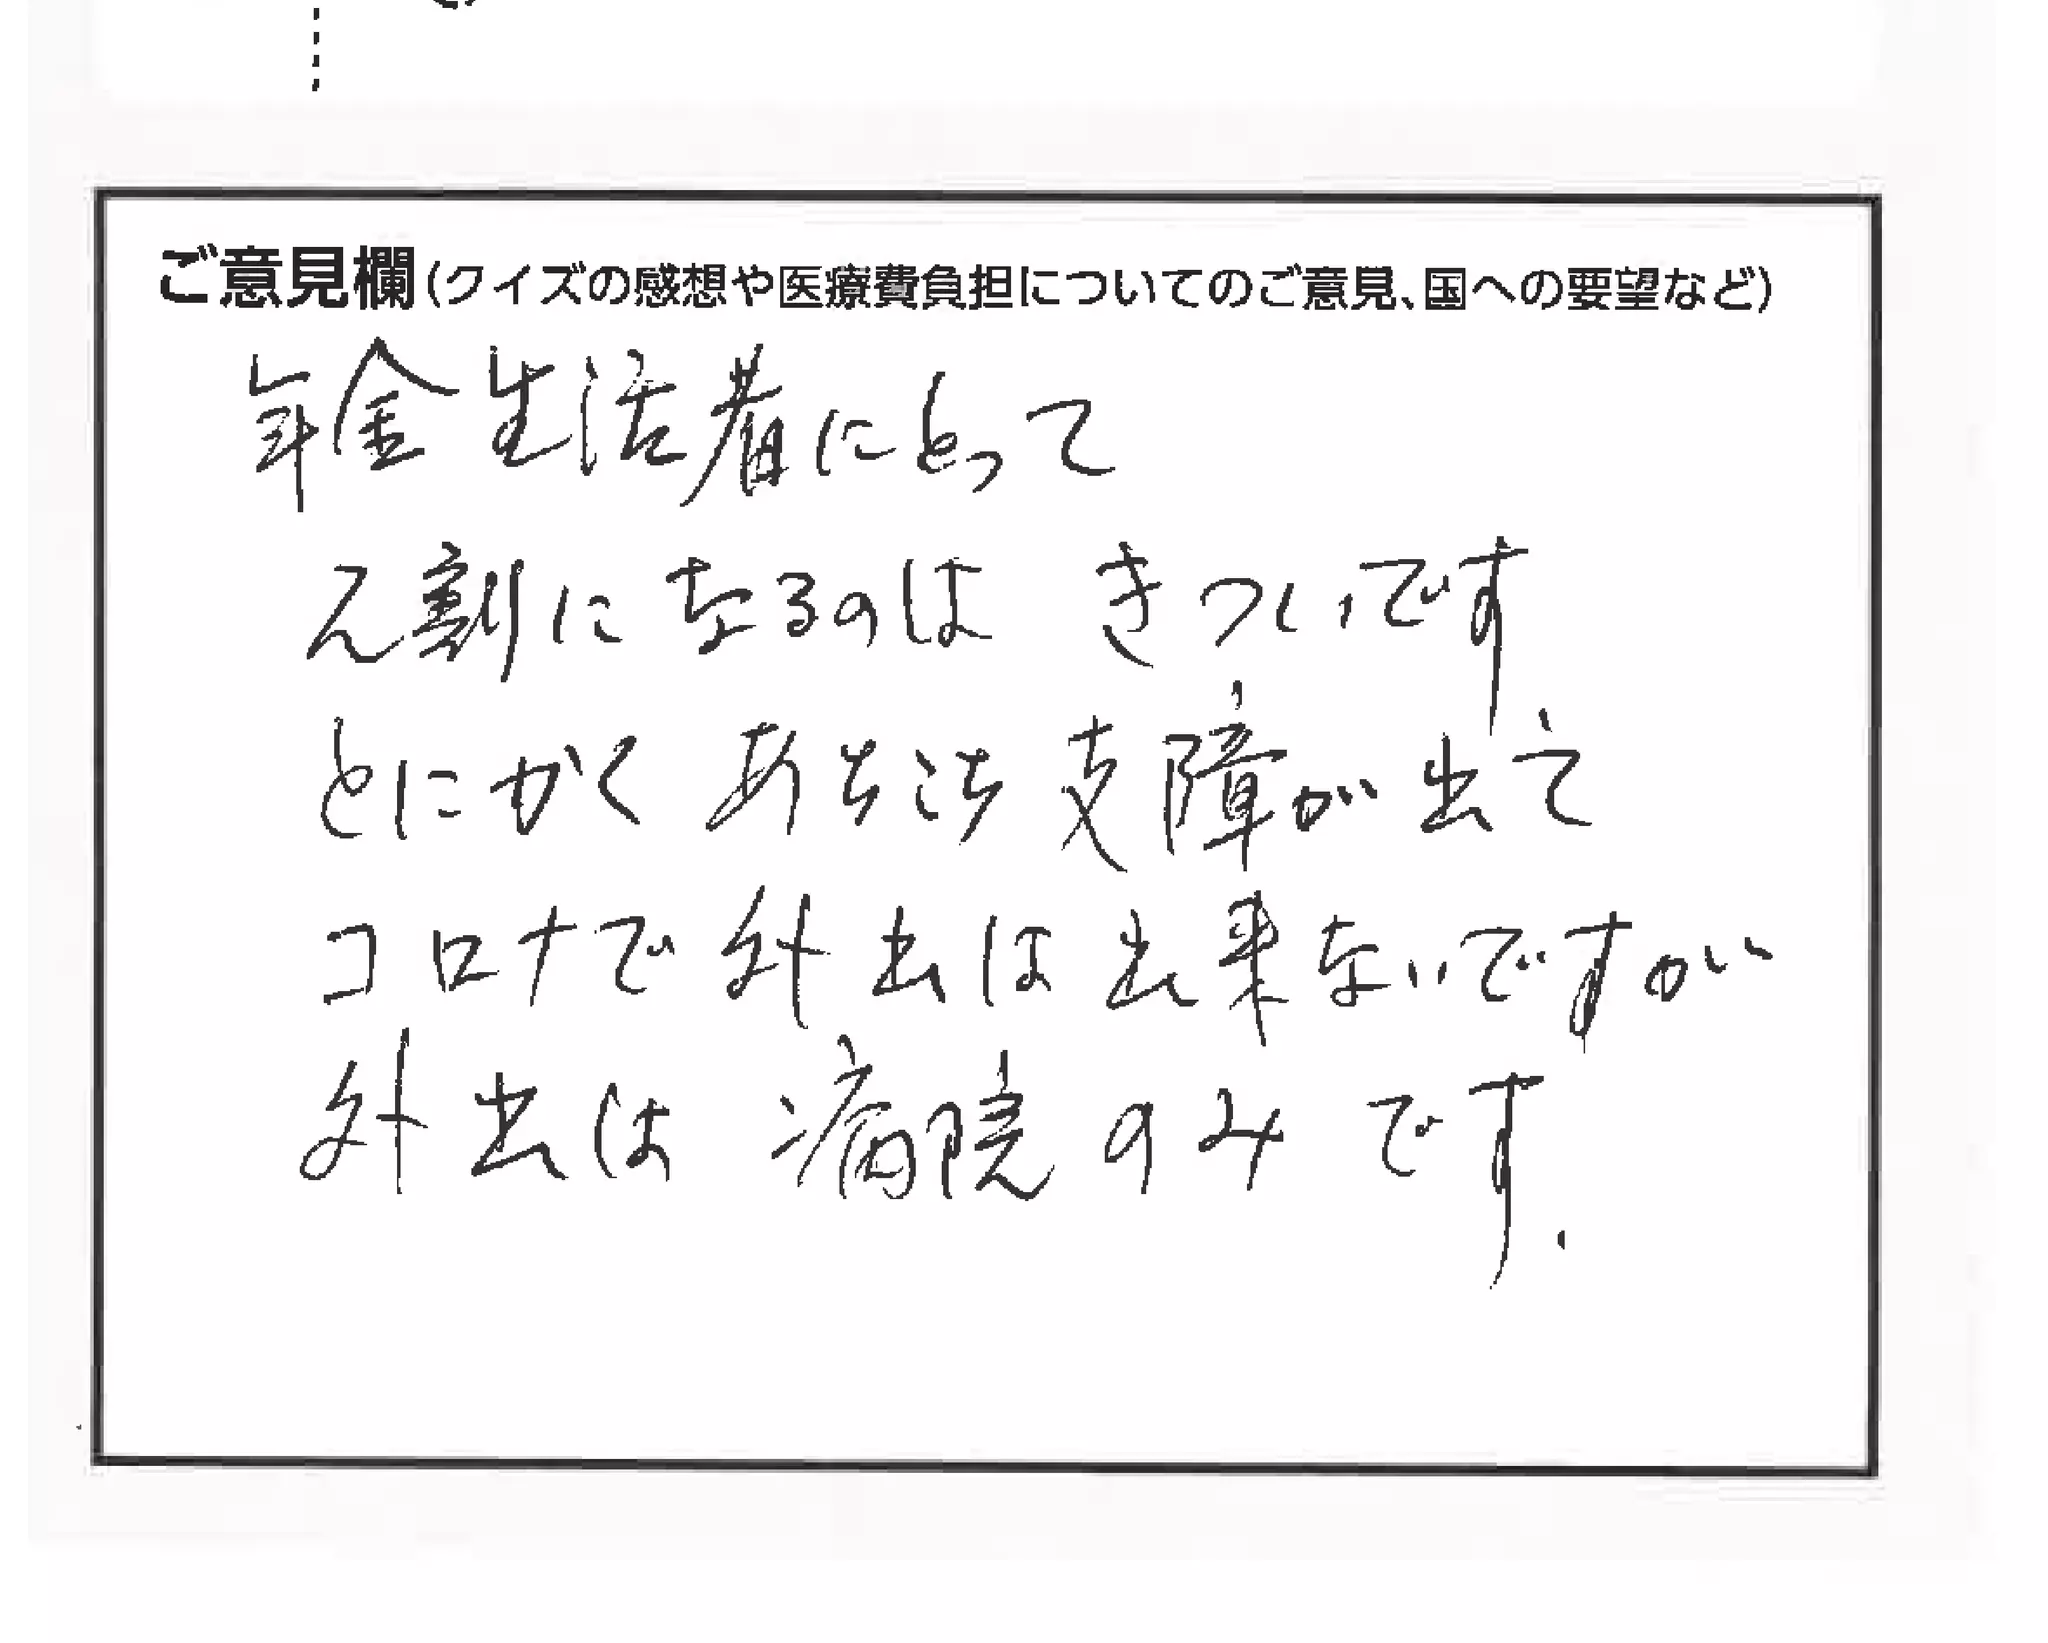 ご意見欄(クイズの感想や医療費負担についてのご意見、国への要望など)
年金生活者にとって
2割になるのは きついです
とにかく あちこち 支障が出て
コロナで外出は出来ないですが
外出は 病院のみです.